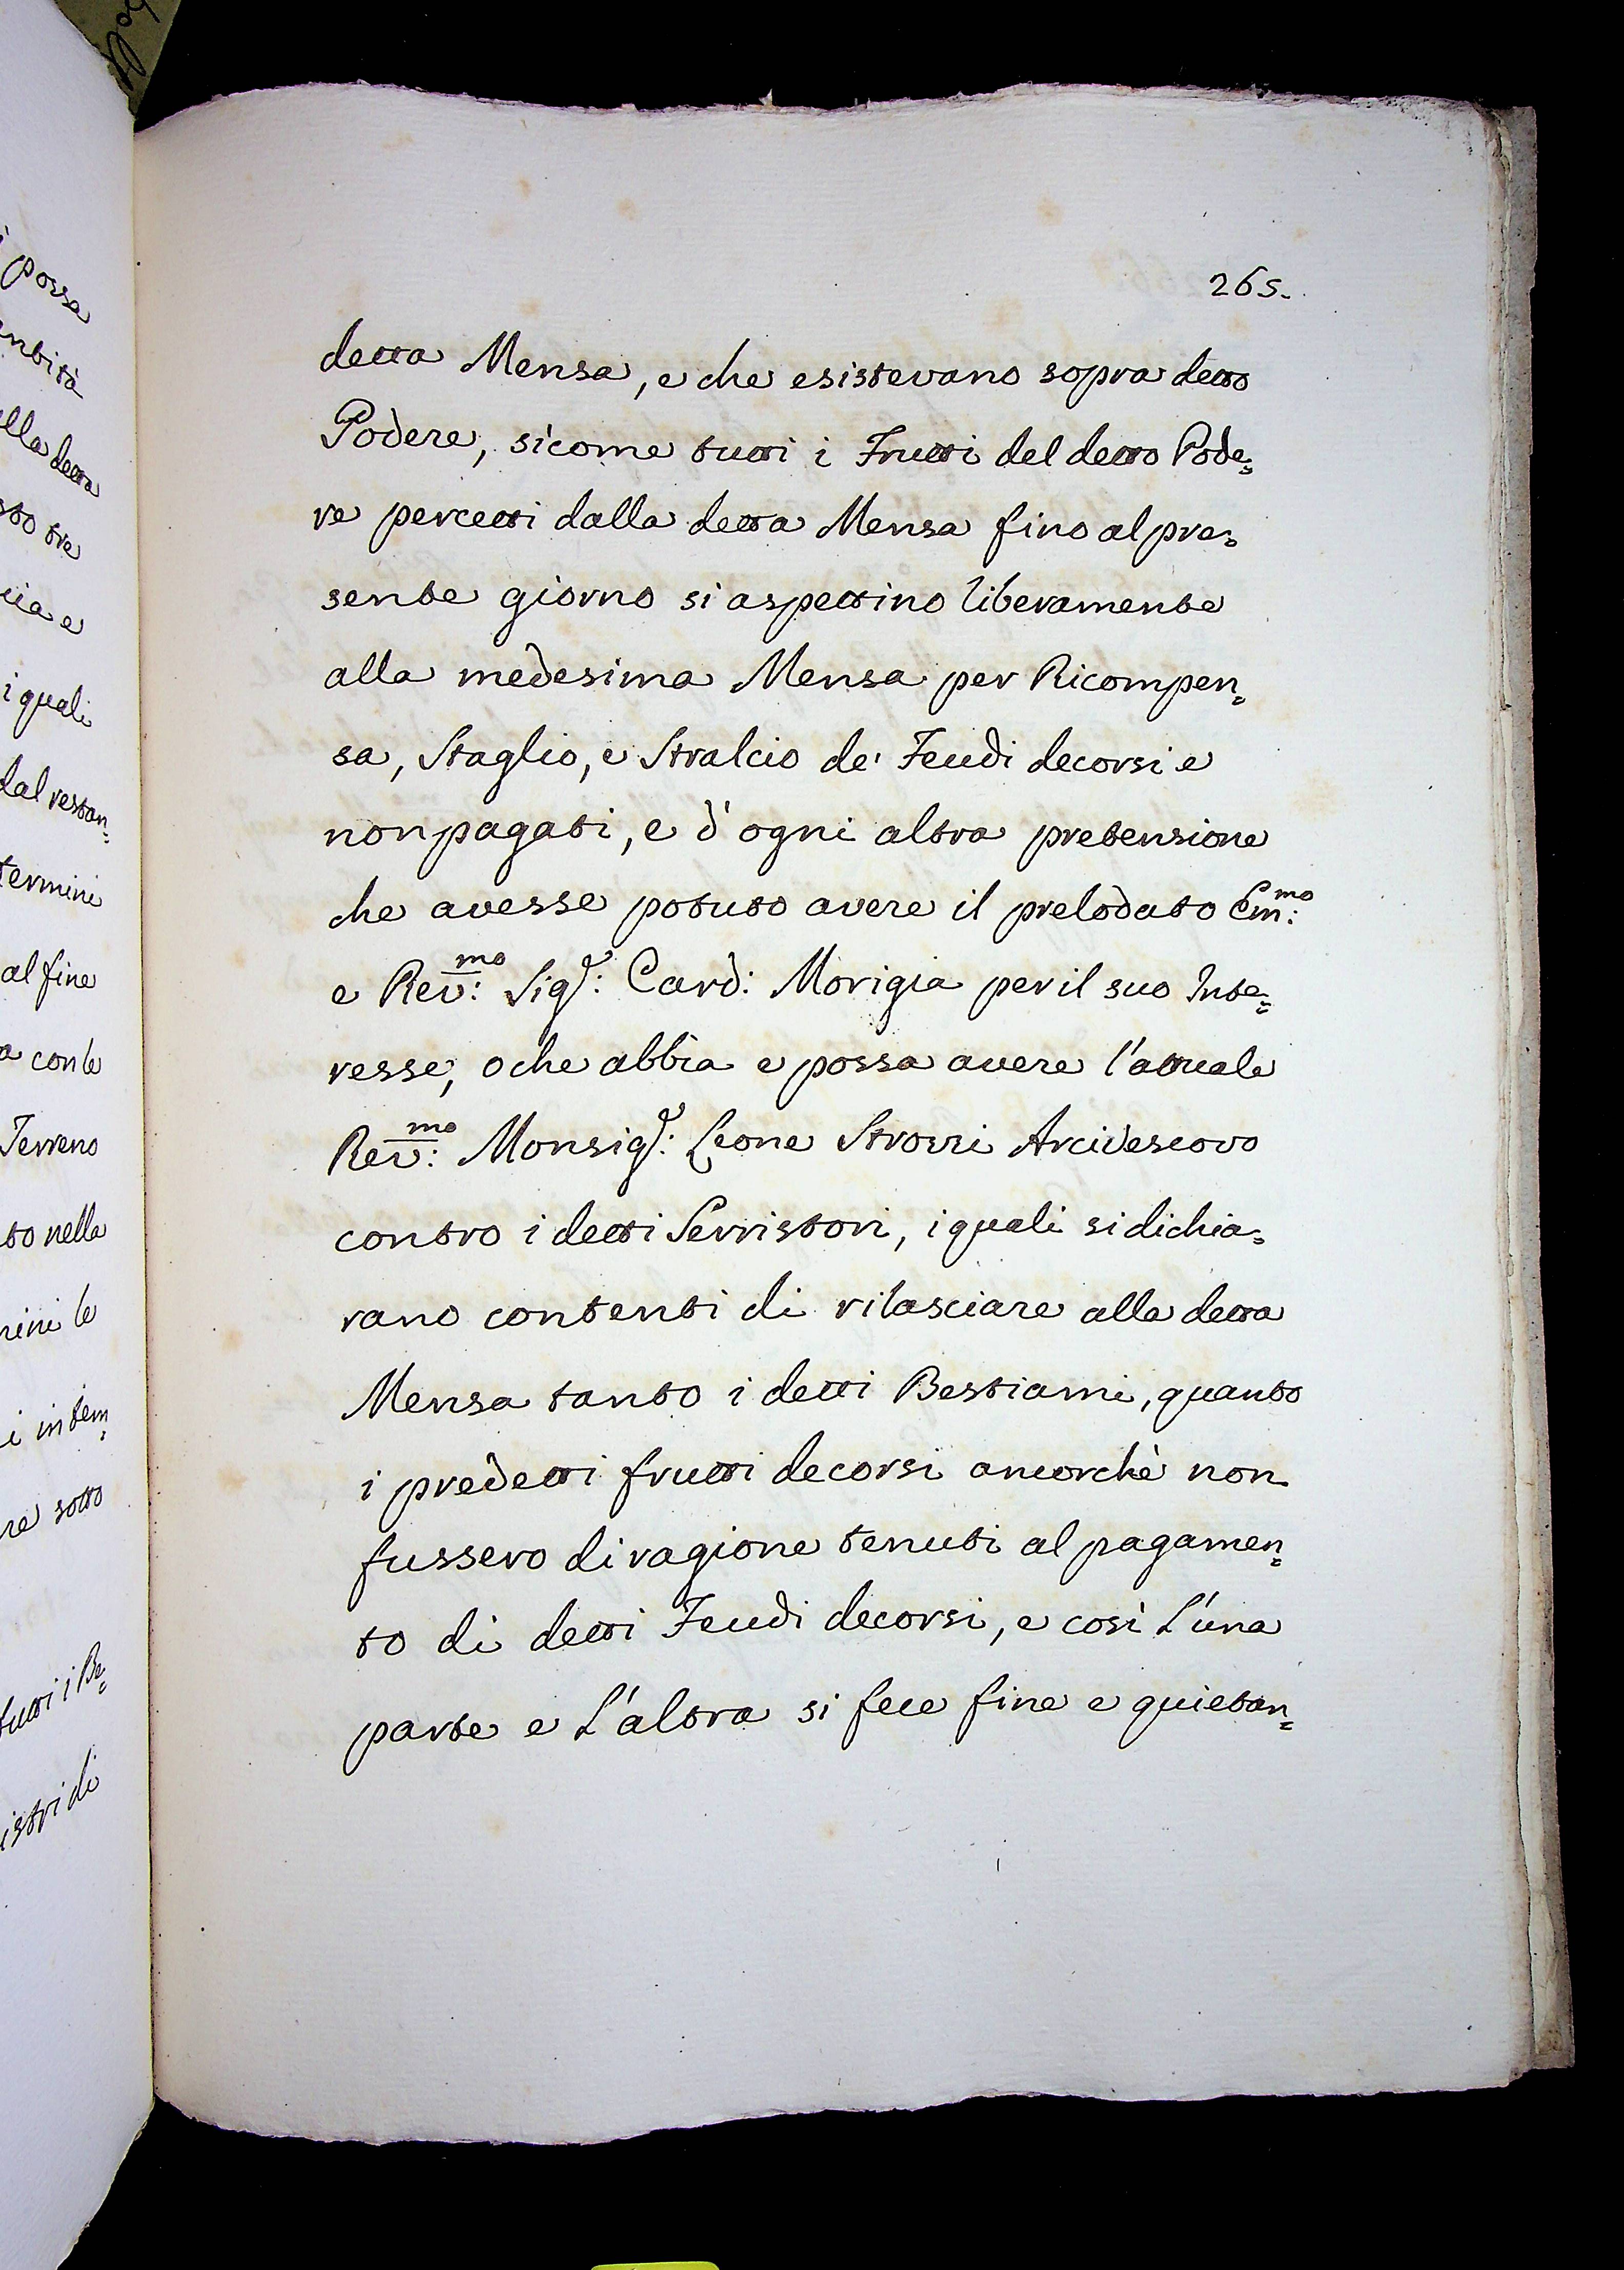 possa
265.
detta Mensa, e che esistevano sopra detto
Podere, sicome tutti i Frutti del detto Pode=
re percetti dalla detta Mensa fino al pre=
sente giorno si aspettino liberamente
alla medesima Mensa per Ricompen=
sa, Staglio, e Stralcio de' Feudi decorsi e
non pagati, e d'ogni altra pretensione
che avesse potuto avere il prelodato Em:mo
e Rev:mo Sig.r: Card: Morigia per il suo Inte=
resse, o che abbia e possa avere l'attuale
Rev:mo Monsig.r: Leone Strozzi Arcivescovo
contro i detti Serristori, i quali si dichia=
rano contenti di rilasciare alla detta
Mensa tanto i detti Bestiami, quanto
i predetti frutti decorsi ancorchè non
fussero di ragione tenuti al pagamen=
to di detti Feudi decorsi, e così L'una
parte e L'altra si fece fine e quietan=
lla detta
i quali
dal restan=
termini
al fine
con le
Terreno
to nella
le
i in tem=
re sotto
tutti i Be=
istri di